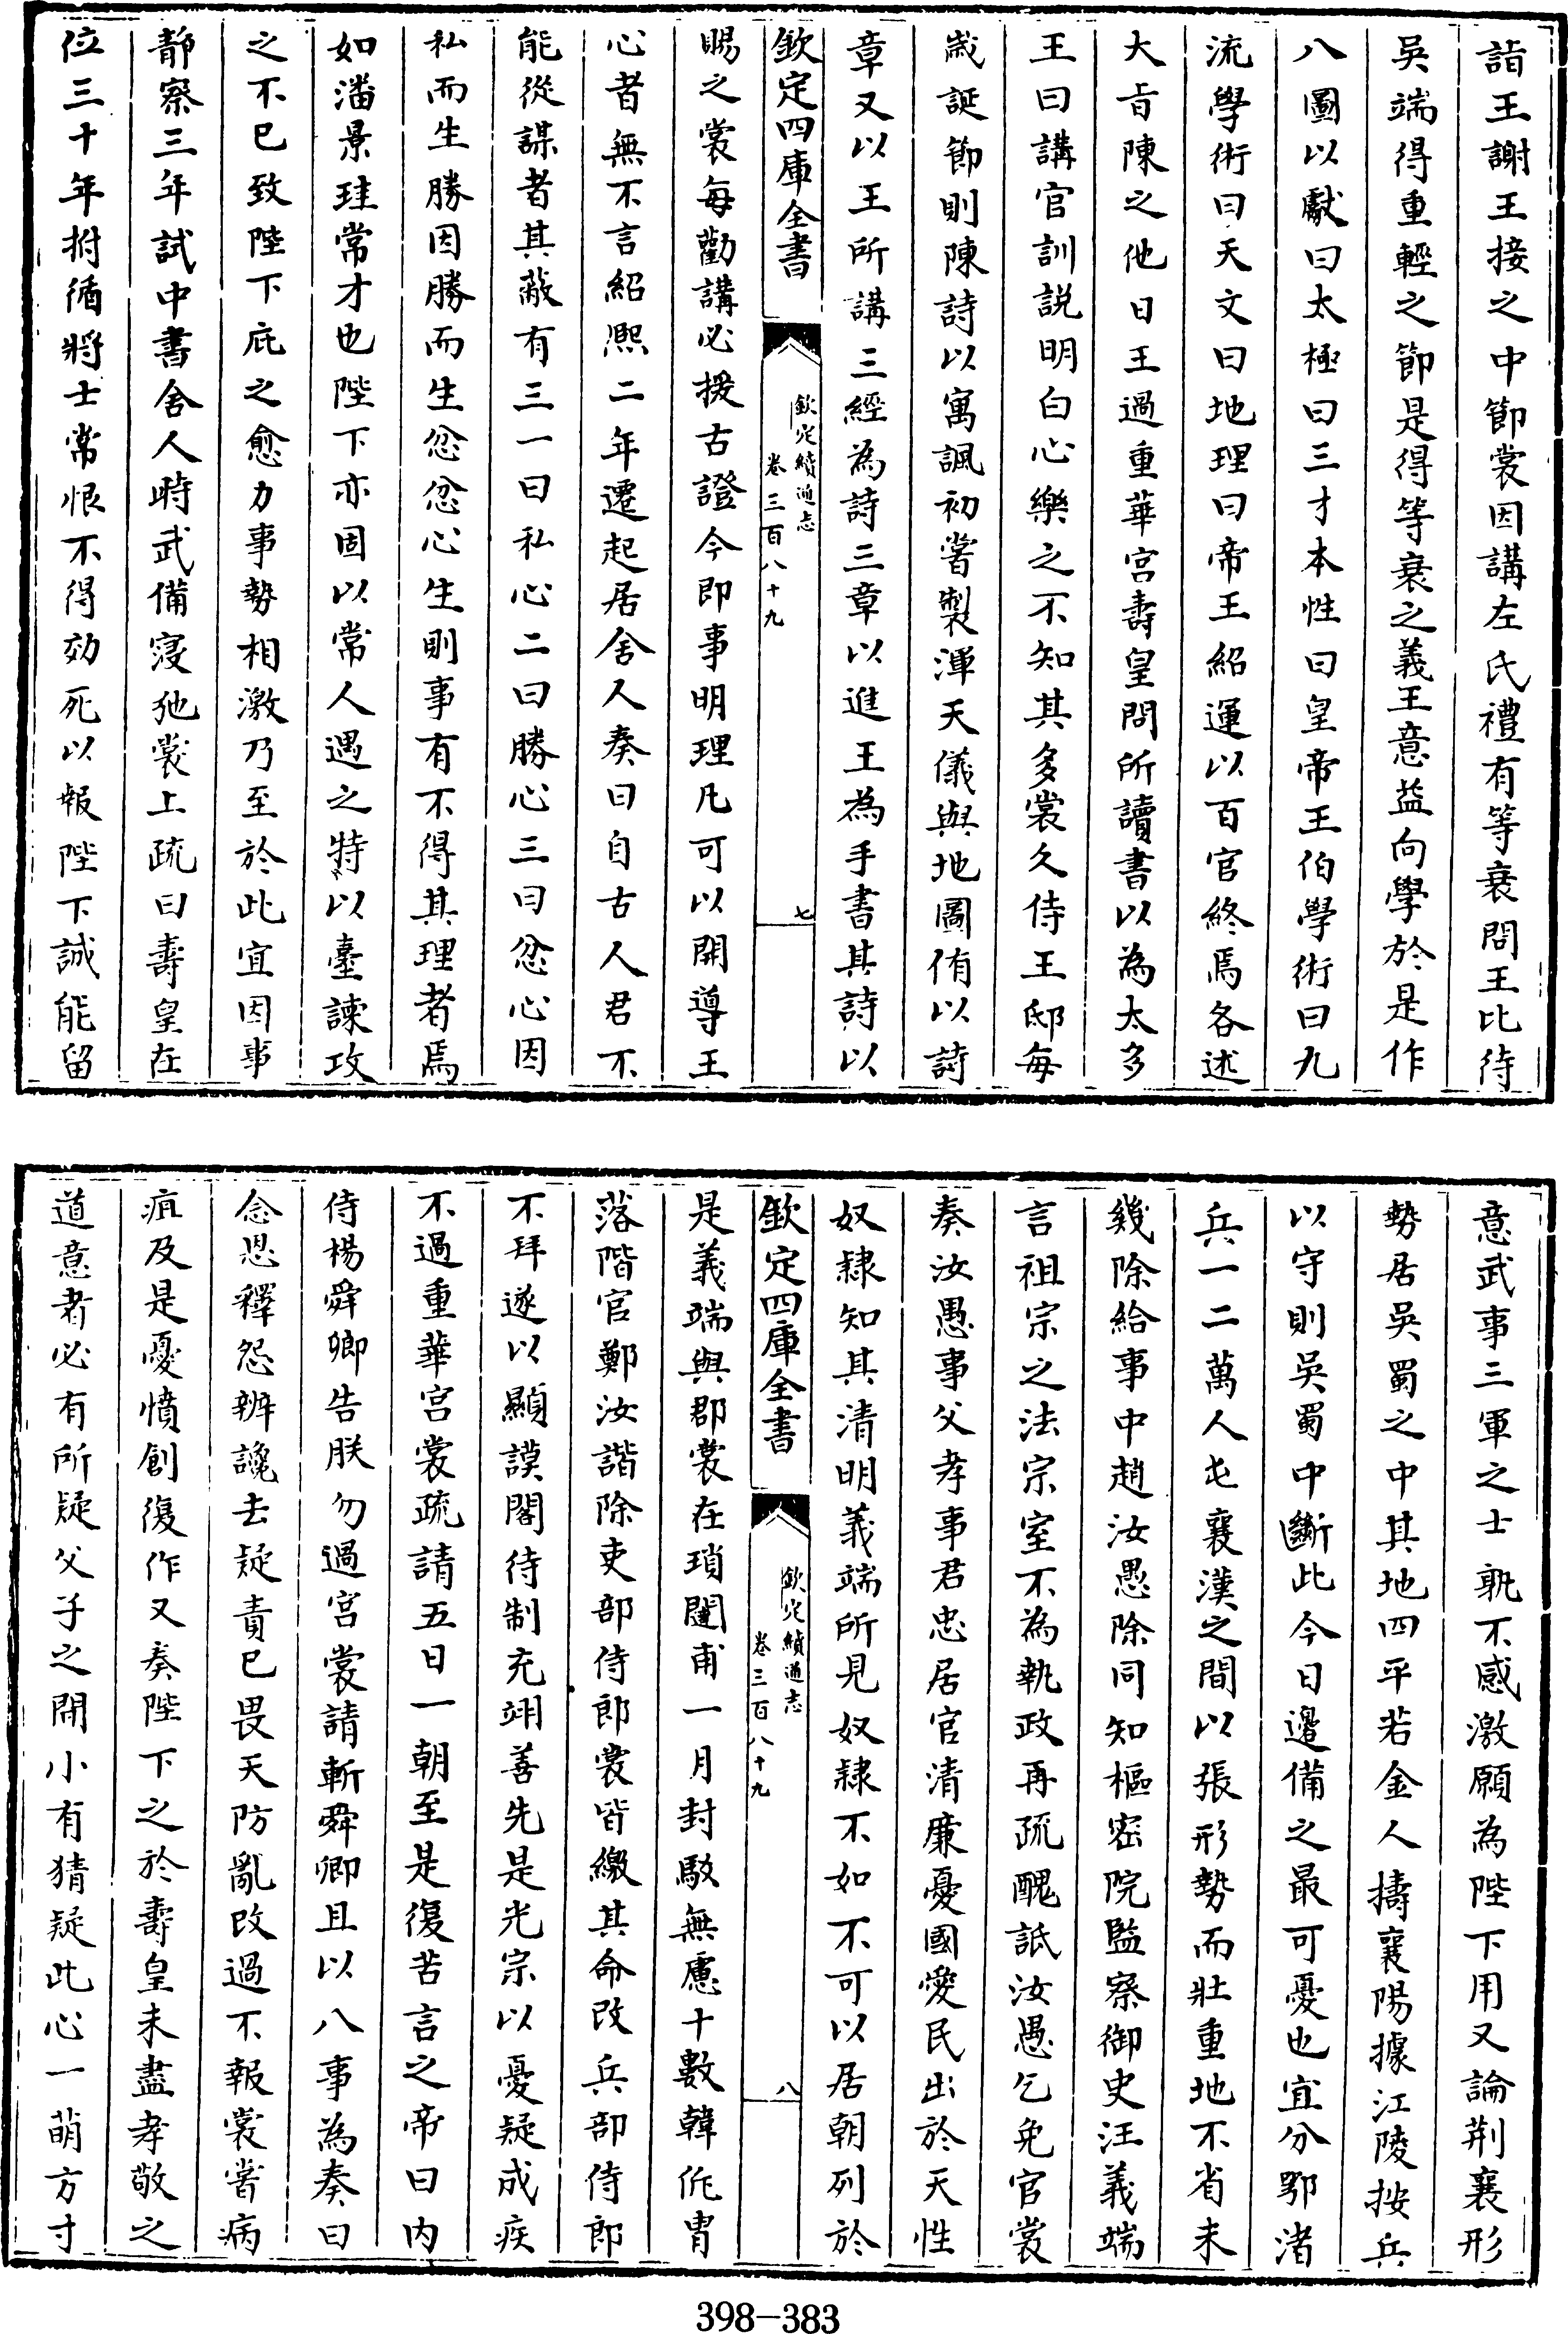 詣王謝王接之中節裳因講左氏禮有等衰問王比待
吳端得重輕之節是得等衰之義王意益向學於是作
八圖以獻曰太極曰三才本性曰皇帝王伯學術曰九
流學術曰天文曰地理曰帝王紹運以百官終焉各述
大旨陳之他日王過重華宮壽皇問所讀書以為太多
王曰講官訓説明白心樂之不知其多裳久侍王邸每
嵗誕節則陳詩以寓諷初嘗製渾天儀與地圖侑以詩
章又以王所講三經為詩三章以進王為手書其詩以
欽定四庫全書
欽定續通志
卷三百八十九
七
賜之裳每勸講必援古證今即事明理凡可以開導王
心者無不言紹熈二年遷起居舍人奏曰自古人君不
能從諫者其蔽有三一曰私心二曰勝心三曰忿心因
私而生勝因勝而生忿忿心生則事有不得其理者焉
如潘景珪常才也陛下亦固以常人遇之特以臺諫攻
之不已致陛下庇之愈力事勢相激乃至於此宜因事
靜察三年試中書舍人時武備寖弛裳上疏曰壽皇在
位三十年拊循將士常恨不得効死以報陛下誠能留
意武事三軍之士孰不感激願為陛下用又論荆襄形
勢居吳蜀之中其地四平若金人擣襄陽據江陵按兵
以守則吳蜀中斷此今日邊備之最可憂也宜分鄂渚
兵一二萬人屯襄漢之間以張形勢而壯重地不省未
幾除給事中趙汝愚除同知樞密院監察御史汪義端
言祖宗之法宗室不為執政再疏醜詆汝愚乞免官裳
奏汝愚事父孝事君忠居官清廉憂國愛民出於天性
奴隸知其清明義端所見奴隸不如不可以居朝列於
欽定四庫全書
欽定續通志
卷三百八十九
八
是義端與郡裳在瑣闥甫一月封駮無慮十數韓侂胄
落階官鄭汝諧除吏部侍郎裳皆繳其命改兵部侍郎
不拜遂以顯謨閣待制充翊善先是光宗以憂疑成疾
不過重華宮裳疏請五日一朝至是復苦言之帝曰内
侍楊舜卿告朕勿過宮裳請斬舜卿且以八事為奏曰
念恩釋怨辨讒去疑責已畏天防亂改過不報裳嘗病
疽及是憂憤創復作又奏陛下之於壽皇未盡孝敬之
道意者必有所疑父子之開小有猜疑此心一萌方寸
398-383